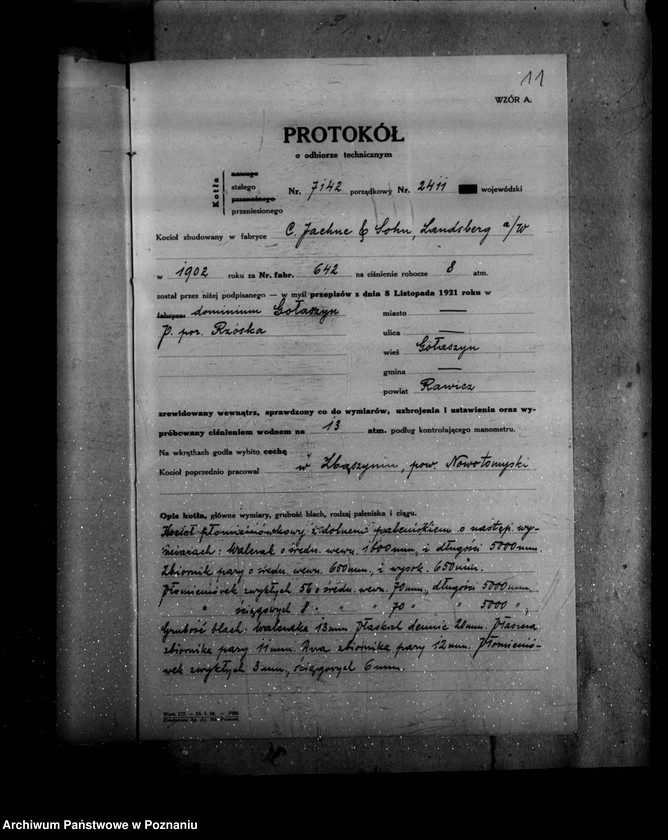 11
WZÓR A.
PROTOKÓŁ
o odbiorze technicznym
Kotła
nowego
stałego
przenośnego
przeniesionego
Nr. 7142 porządkowy Nr. 2411 wojewódzki
Kocioł zbudowany w fabryce C. Jaehne & Sohn, Landsberg a/W
w 1902 roku za Nr. fabr. 642 na ciśnienie robocze 8 atm.
został przez niżej podpisanego — w myśl przepisów z dnia 8 Listopada 1921 roku w
fabryce: dominium Gołaszyn
P. por. Rzóska
miasto —
ulica —
wieś Gołaszyn
gmina —
powiat Rawicz
zrewidowany wewnątrz, sprawdzony co do wymiarów, uzbrojenia i ustawienia oraz wy-
próbowany ciśnieniem wodnem na 13 atm. podług kontrolującego manometru.
Na wkrętkach godła wybito cechę
Kocioł poprzednio pracował w Zbąszyniu, pow. Nowotomyski
Opis kotła, główne wymiary, grubość blach, rodzaj paleniska i ciągu.
Kocioł płomieniówkowy z dolnem paleniskiem o następ. wy-
miarach: walczak o średn. wewn. 1600 mm, i długości 5000 mm.
Zbiornik pary o średn. wewn. 650 mm, i wysok. 650 mm.
Płomieniówek zwykłych 56 o średn. wewn. 70 mm, długości 5000 mm.
" ściągowych 8 " " " 70 " " 5000 ".
Grubość blach: walczaka 13 mm. Płaskch dennic 20 mm. Płaszcza
zbiornika pary 11 mm. Dna zbiornika pary 12 mm. Płomienió-
wek zwykłych 3 mm, ściągowych 6 mm.